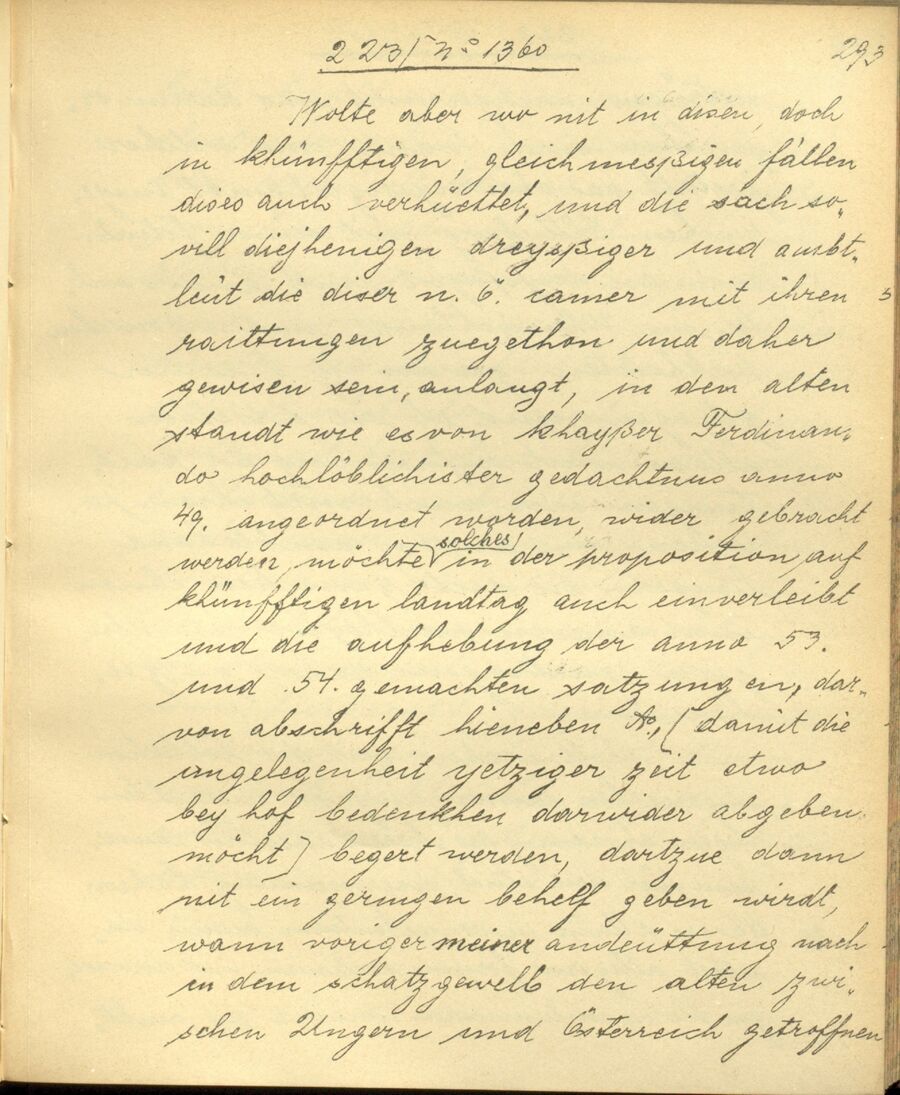 223/ No 1360
293
Wolte aber wo nit in disen, doch
in khünfftigen, gleichmesßigen fällen
dises auch verhüettet, und die sach so„
vill diejhenigen dreysßiger und ambt„
leüt die diser n. ö. camer mit ihren 5
raittungen zuegethon und daher
gewisen sein, anlangt, in den alten
standt wie es von khayßer Ferdinan„
do hochlöblichister gedachtnus anno
49. angeordnet worden, wider gebracht
werden, möchte solches in der proposition auf
khünfftigen landtag auch einverleibt
und die aufhebung der anno 53.
und 54. gemachten satzungen, dar„
von abschrifft hieneben (damit die
ungelegenheit yetziger zeit etwo
bey hof bedenkhen darwider abgeben
möcht) begert werden, dartzue dann
nit ein geringen behelf geben wirdt,
wann voriger meiner andeüttung nach
in dem schatzgewelb den alten zwi„
schen Ungern und Österreich getroffnen